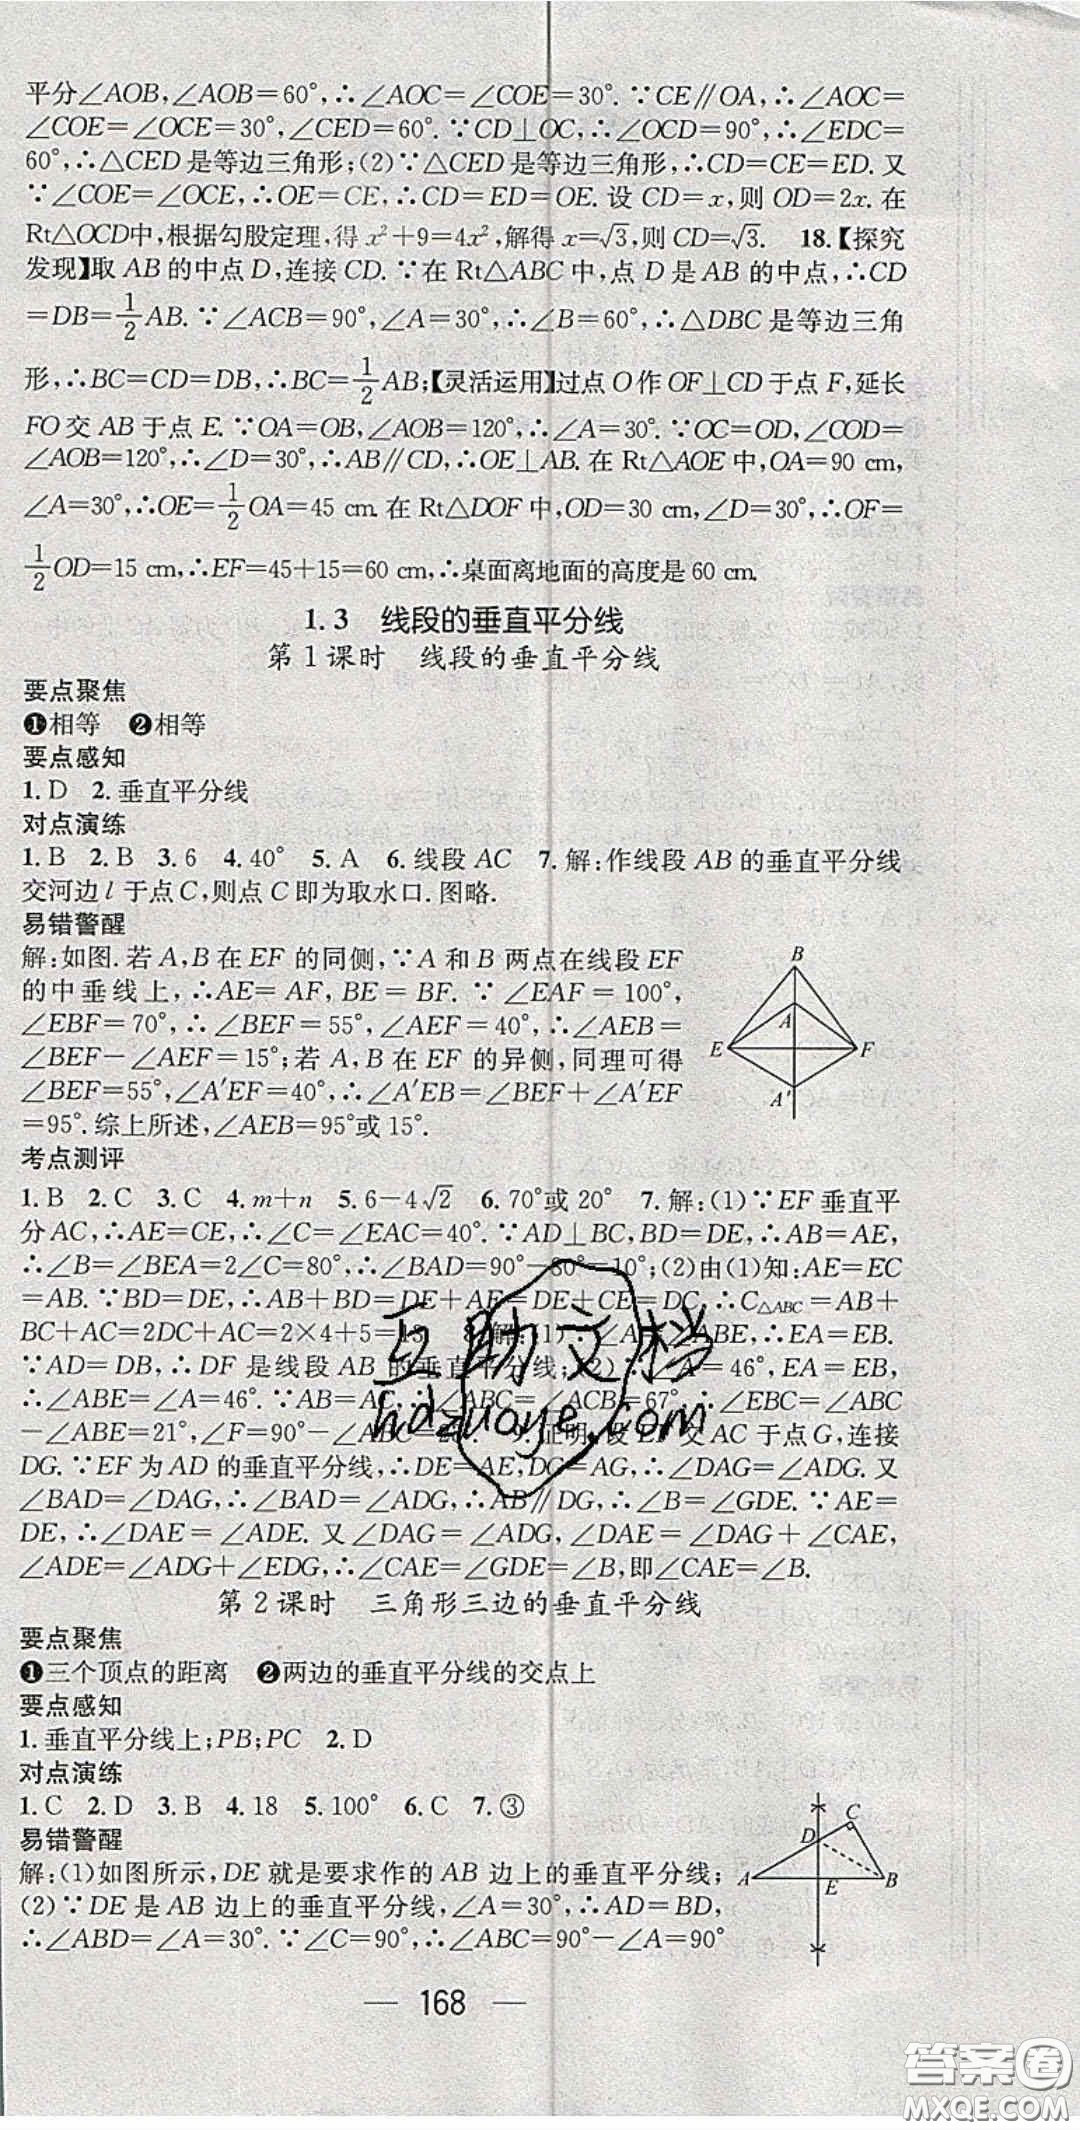 平分∠AOB,∠AOB=60°,∴∠AOC=∠COE=30°.∵CE∥OA,∴∠AOC=
∠COE=∠OCE=30°,∠CED=60°.∵CD⊥OC,∴∠OCD=90°,∴∠EDC=
60°,∴△CED是等边三角形;(2)∵△CED是等边三角形,∴CD=CE=ED.又
∵∠COE=∠OCE,∴OE=CE,∴CD=ED=OE.设CD=x,则OD=2x.在
Rt△OCD中,根据勾股定理,得x²+9=4x²,解得x=√3,则CD=√3. 18.【探究
发现】取AB的中点D,连接CD.∵在Rt△ABC中,点D是AB的中点,∴CD
=DB=1/2AB.∵∠ACB=90°,∠A=30°,∴∠B=60°,∴△DBC是等边三角
形,∴BC=CD=DB,∴BC=1/2AB;【灵活运用】过点O作OF⊥CD于点F,延长
FO交AB于点E.∵OA=OB,∠AOB=120°,∴∠A=30°.∵OC=OD,∠COD=
∠AOB=120°,∴∠D=30°,∴AB∥CD,∴OE⊥AB.在Rt△AOE中,OA=90 cm,
∠A=30°,∴OE=1/2OA=45 cm.在Rt△DOF中,OD=30 cm,∠D=30°,∴OF=
1/2OD=15 cm,∴EF=45+15=60 cm,∴桌面离地面的高度是60 cm.
1.3 线段的垂直平分线
第1课时 线段的垂直平分线
要点聚焦
❶相等 ❷相等
要点感知
1.D 2.垂直平分线
对点演练
1.B 2.B 3.6 4.40° 5.A 6.线段AC 7.解:作线段AB的垂直平分线
交河边l于点C,则点C即为取水口.图略.
易错警醒
解:如图.若A,B在EF的同侧,∵A和B两点在线段EF
的中垂线上,∴AE=AF,BE=BF.∵∠EAF=100°,
∠EBF=70°,∴∠BEF=55°,∠AEF=40°,∴∠AEB=
∠BEF-∠AEF=15°;若A,B在EF的异侧,同理可得
∠BEF=55°,∠A'EF=40°,∴∠A'EB=∠BEF+∠A'EF
=95°.综上所述,∠AEB=95°或15°.
B
A
E
F
A'
考点测评
1.B 2.C 3.C 4.m+n 5.6-4√2 6.70°或20° 7.解:(1)∵EF垂直平
分AC,∴AE=CE,∴∠C=∠EAC=40°.∵AD⊥BC,BD=DE,∴AB=AE,
∴∠B=∠BEA=2∠C=80°,∴∠BAD=90°-80°=10°;(2)由(1)知:AE=EC
=AB.∵BD=DE,∴AB+BD=DE+AE=DE+CE=DC,∴C△ABC=AB+
BC+AC=2DC+AC=2×4+5=13. 8.解:(1)∵∠A=∠ABE,∴EA=EB.
∵AD=DB,∴DF是线段AB的垂直平分线;(2)∵∠A=46°,EA=EB,
∴∠ABE=∠A=46°.∵AB=AC,∴∠ABC=∠ACB=67°,∴∠EBC=∠ABC
-∠ABE=21°,∠F=90°-∠ABC= 9.证明:设EF交AC于点G,连接
DG.∵EF为AD的垂直平分线,∴DE=AE,DG=AG,∴∠DAG=∠ADG.又
∠BAD=∠DAG,∴∠BAD=∠ADG,∴AB∥DG,∴∠B=∠GDE.∵AE=
DE,∴∠DAE=∠ADE.又∠DAG=∠ADG,∠DAE=∠DAG+∠CAE,
∠ADE=∠ADG+∠EDG,∴∠CAE=∠GDE=∠B,即∠CAE=∠B.
互助文档
hdzuoye.com
第2课时 三角形三边的垂直平分线
要点聚焦
❶三个顶点的距离 ❷两边的垂直平分线的交点上
要点感知
1.垂直平分线上;PB;PC 2.D
对点演练
1.C 2.D 3.B 4.18 5.100° 6.C 7.③
易错警醒
解:(1)如图所示,DE就是要求作的AB边上的垂直平分线;
(2)∵DE是AB边上的垂直平分线,∠A=30°,∴AD=BD,
∴∠ABD=∠A=30°.∵∠C=90°,∴∠ABC=90°-∠A=90°
C
D
A
E
B
— 168 —
答案圈
MXQE.COM